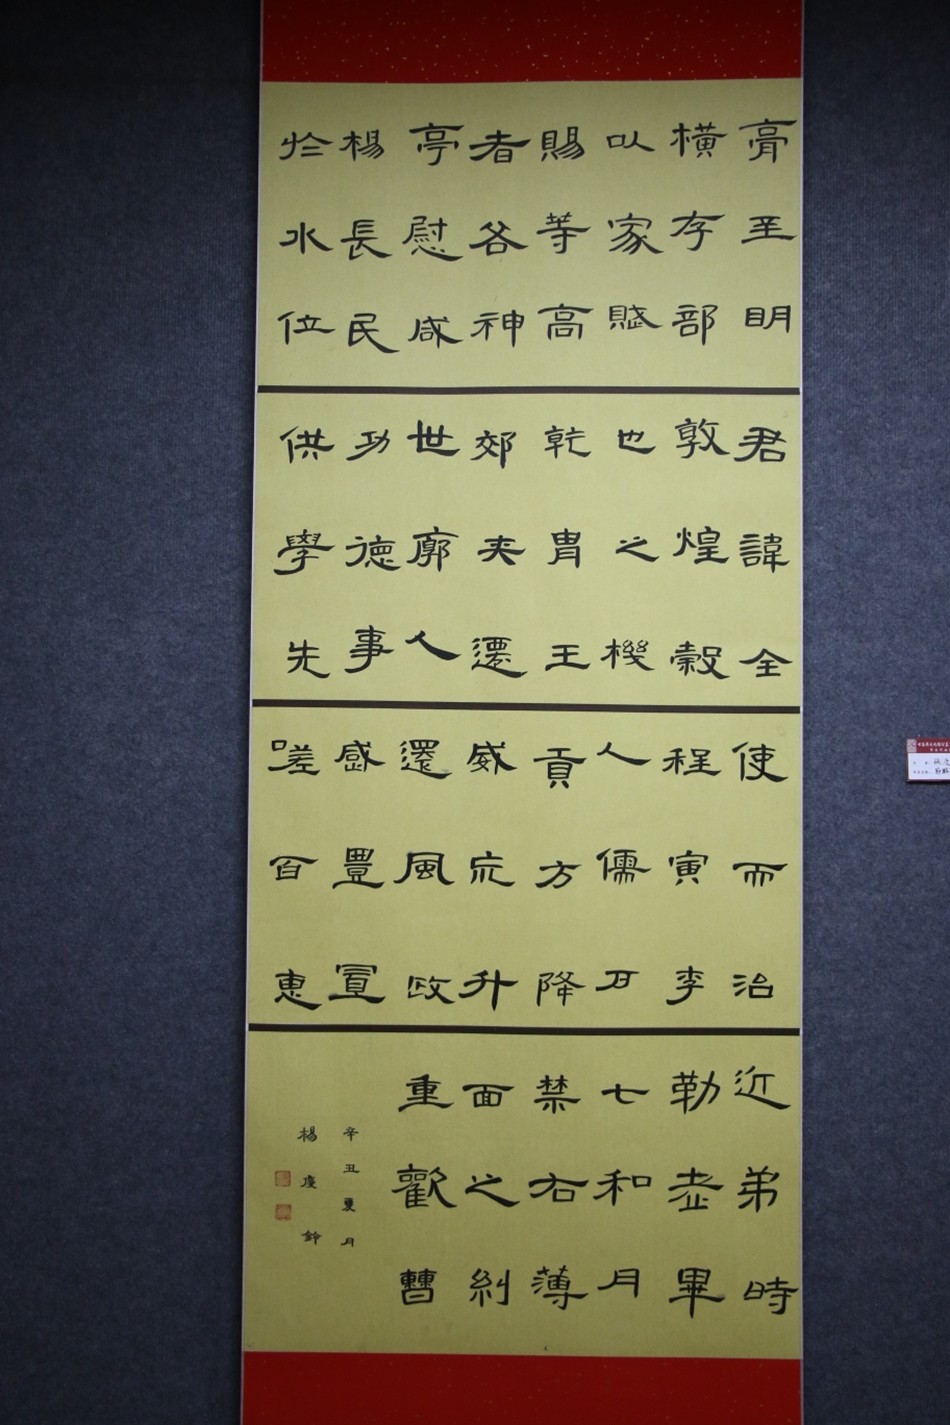 膏至明
橫存部
以家賦
賜等高
者各神
亭慰咸
楊長民
於水位
君諱全
敦煌穀
也之機
乾胄王
郊夾遷
世廓人
功德事
供學先
使而治
程寅李
人儒
貢方降
威升
還風政
感豊置
嗟百惠
近弟時
勒老畢
七和月
禁右薄
面之糾
重歡曹
辛丑夏月
楊慶鈴